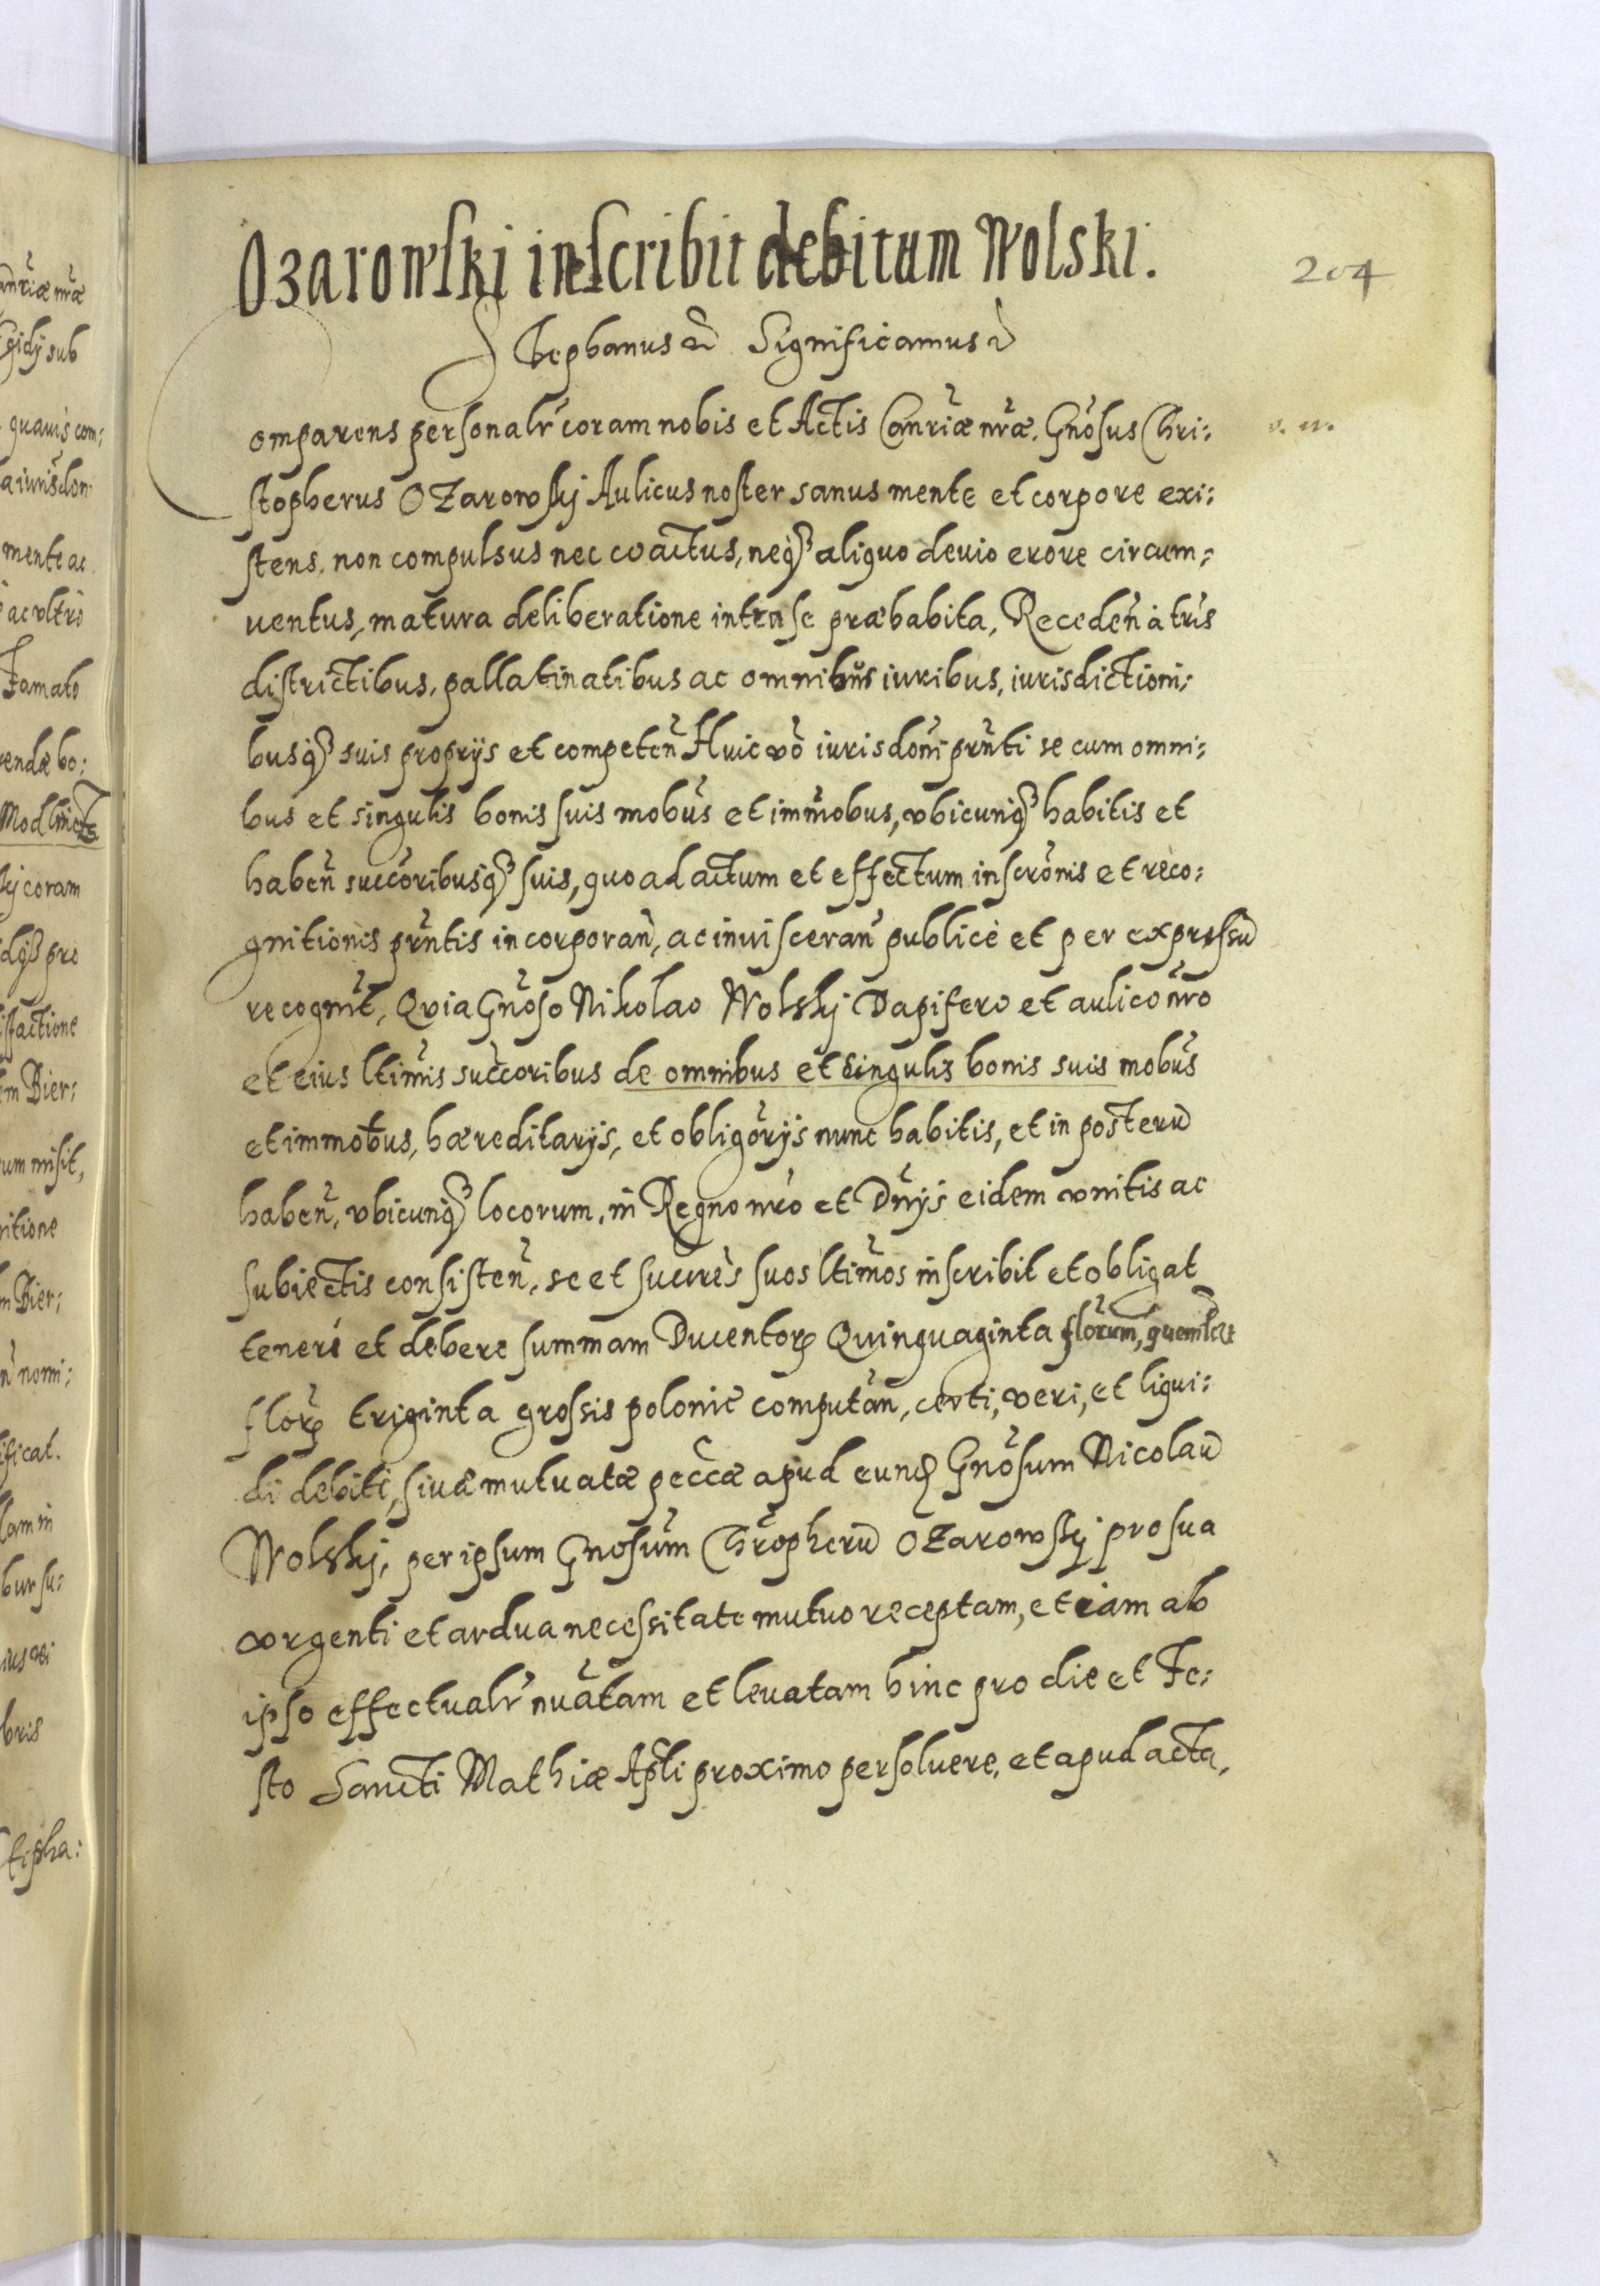 Ozarowski inscribit debitum Wolski.
204
Stephanus etc. Significamus etc.
omparens personalr̃ coram nobis et Actis Canr̃iæ nr̃æ. Gñosus Chri:
stopherus OZarowskj Aulicus noster sanus mente et corpore exi:
stens, non compulsus nec coactus, neq3 aliquo deuio erore circum:
uentus, matura deliberatione inter se præhabita, Recedeñ à tr̃is
districtibus, pallatinatibus ac omnibus iuribus, iurisdictioni:
busq3 suis proprijs et competeñ Huic võ iurisdõni prñti se cum omni:
bus et singulis bonis suis mobũs et immobus, vbicunq3 habitis et
habeñ succõribusq3 suis, quo ad actum et effectum inscrõnis et reco:
gnitionis prñtis incorporañ, ac inuiscerañ publicè et per expressũ
recognit̃, Quia Gñoso Nikolao Wolskj Dapifero et aulico nr̃o
et eius ltimis̃ succõribus de omnibus et singulis bonis suis mobũs
et immobus, hæreditarijs, et obligõrijs nunc habitis, et in posterũ
habeñ, vbicunq3 locorum, in Regno nr̃o et Dñijs eidem vnitis ac
subiectis consisteñ, se et sucrẽs suos ltimõs inscribit et obligat
teneri et debere summam Ducentoꝝ Quinquaginta flõrum, quemlet
flõꝝ triginta grossis polonic̃ computañ, certi, veri, et liqui:
di debiti, siuæ mutuatæ pecc̃æ apud eundꝫ Gñosum Nicolaũ
Wolskj, per ipsum Gnosũm Chr̃opherũ OZarowskj pro sua
vrgenti et ardua necessitate mutuo receptam, et iam ab
ipso effectualr̃ nuãtam et leuatam hinc pro die et Fe:
sto Sancti Mathiæ Apl̃i proximo persoluere, et apud acta,